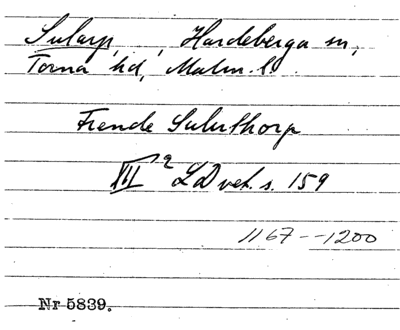 Sularp, , Hardeberga sn,
Torna hd, Malm. l.
Frende Suluthorp
XII 2 LD vet. s. 159
1167--1200
Nr 5839.